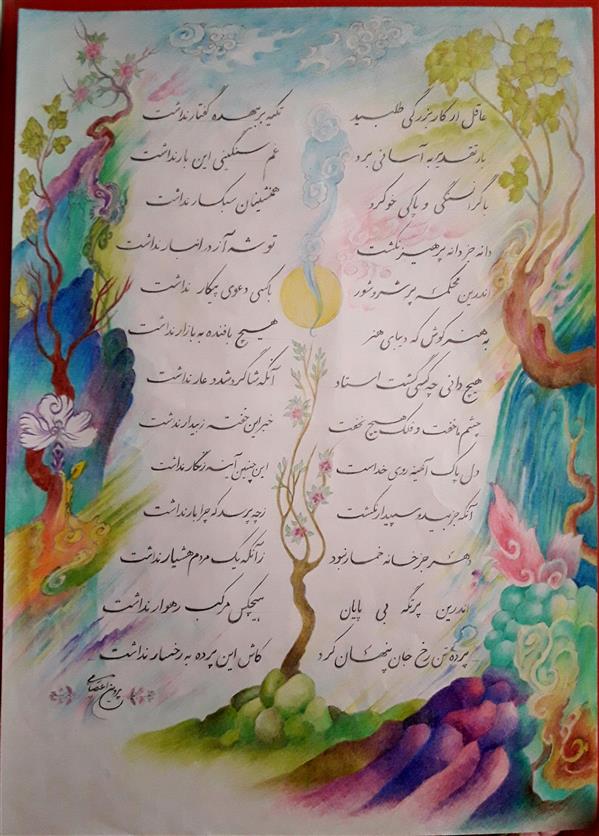 عاقل از کار بزرگی طلبید تکیه بر بیهده گفتار نداشت
بار تقدیر به آسانی برد غم سنگینی این بار نداشت
با گرانسنگی و پاکی خو کرد همنشینان سبکسار نداشت
دانه جز دانه پرهیز نکشت توشه آز در انبار نداشت
اندرین محکمه پر شر و شور با کسی دعوی پیکار نداشت
به هنر کوش که دیبای هنر هیچ بافنده به بازار نداشت
هیچ دانی چه کسی گشت استاد آنکه شاگرد شد و عار نداشت
چشم ما خفت و فلک هیچ نخفت خبر این خفته ز بیدار نداشت
دل پاک آئینه روی خداست این چنین آینه زنگار نداشت
آنکه جز بید و سپیدار نکشت ز چه پرسد که چرا بار نداشت
دهر جز خانه خمار نبود زآنکه یک مردم هشیار نداشت
اندرین پرتگه بی پایان هیچکس مرکب رهوار نداشت
پرده تن رخ جان پنهان کرد کاش این پرده به رخسار نداشت
پروین اعتصامی